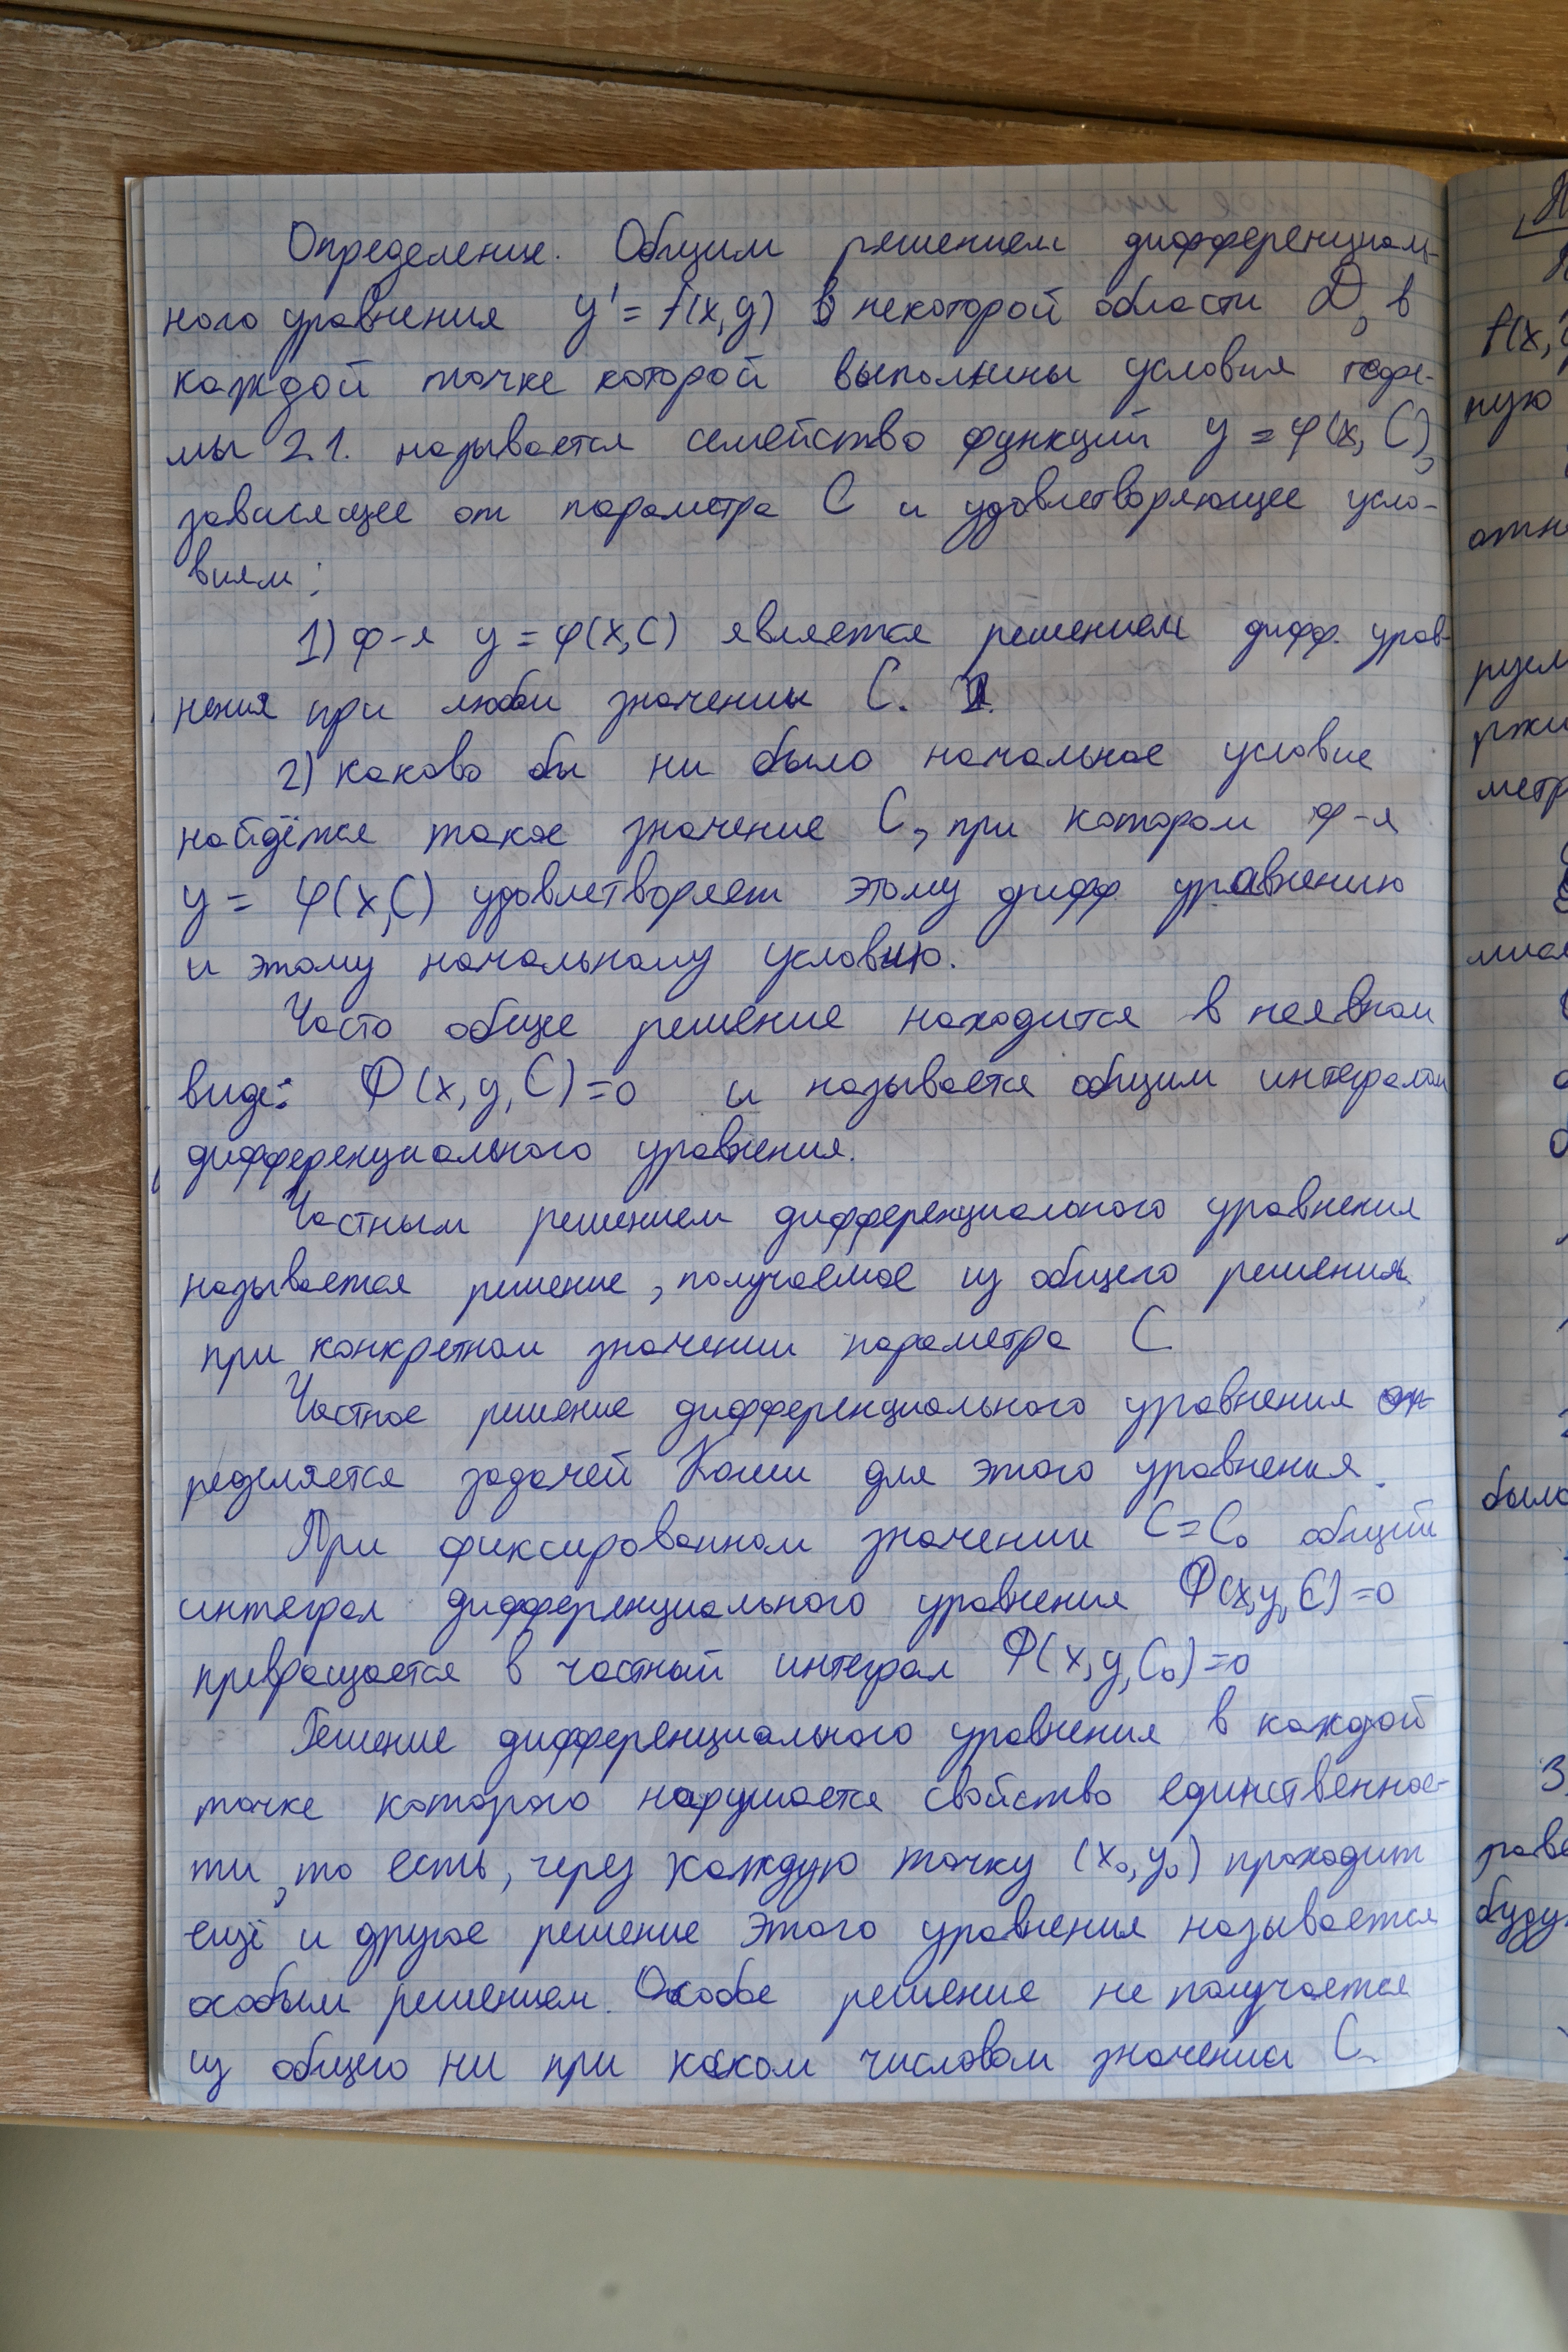 Определение. Общим решением дифференциаль-
ного уравнения y' = f(x,y) в некоторой области D, в
каждой точке которой выполнены условия теоре-
мы 2.1. называется семейство функций y = φ(x, C),
зависящее от параметра C и удовлетворяющее усло-
виям:
1) ф-я y = φ(x,C) является решением дифф. урав-
нения при любом значении C.
2) каково бы ни было начальное условие
найдётся такое значение C, при котором ф-я
y = φ(x,C) удовлетворяет этому дифф уравнению
и этому начальному условию.
Часто общее решение находится в неявном
виде: Ф(x,y,C)=0 и называется общим интегралом
дифференциального уравнения.
Частным решением дифференциального уравнения
называется решение, получаемое из общего решения
при конкретном значении параметра C
Частное решение дифференциального уравнения оп-
ределяется задачей Коши для этого уравнения.
При фиксированном значении C=C₀ общий
интеграл дифференциального уравнения Ф(x,y,C)=0
превращается в частный интеграл Ф(x,y,C₀)=0
Решение дифференциального уравнения в каждой
точке которого нарушается свойство единственнос-
ти, то есть, через каждую точку (x₀,y₀) проходит
ещё и другое решение этого уравнения называется
особым решением. Особое решение не получается
из общего ни при каком числовом значении C.
f(x,
ную
метр
было
буду